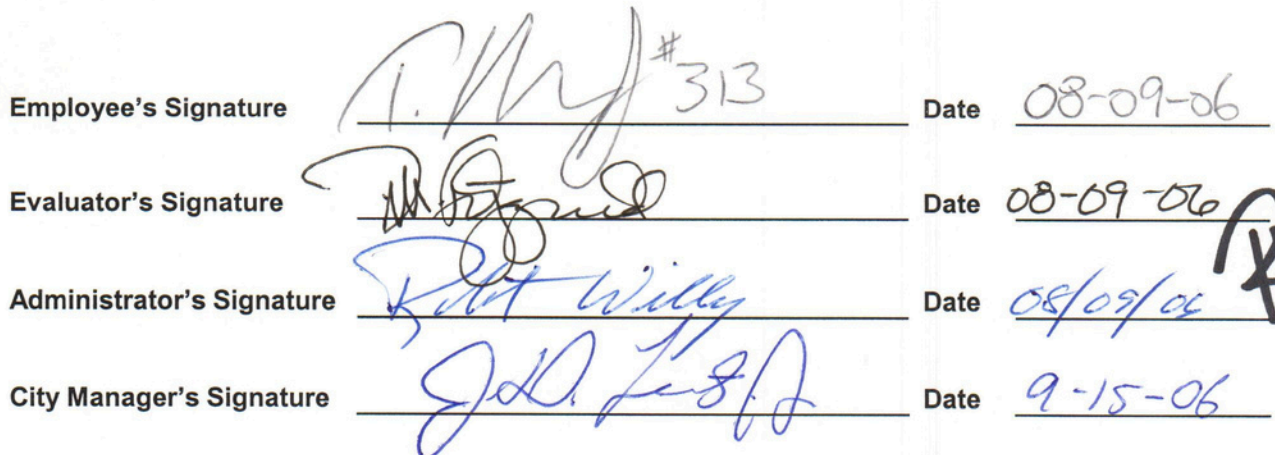 Employee's Signature #313 Date 08-09-06
Evaluator's Signature Date 08-09-06
Administrator's Signature Willy Date 08/09/06
City Manager's Signature Date 9-15-06